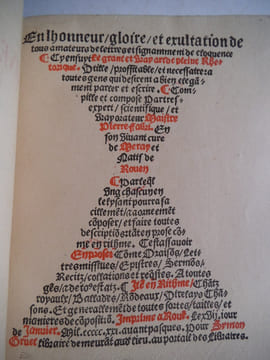 En lhonneur/gloire/et exultatiõn de
tous amateurs de lettres et signamment de eloquence
Cy ensuyt Le grant et vray art de pleine Rhe-
torique. Utille/proffitable/et necessaire a
toutes gens qui desirent a bien elega-
ment parler et escrire. Com-
pille et compose Par tres-
expert/scientifique/et
vray orateur Maistre
Pierre Fabri. En
son vivant cure
de Meray et
Natif de
Rouen
Par leq̃l
ung chascun en
lysant pourra fa
cillemẽt/aornemẽt
cõposer/et faire toutes
descriptiõs tãt en prose cõ-
me en rithme. Cest assavoir
En prose Cõme Oraisõs/Let-
tres missives/Epistres/Sermõs/
Recitz/collations et reqstes. A toutes
gẽs/et de to9 estatz. Itẽ en Rithme/Chãtz
royaulx/Ballades/Rõdeaux/Virelays/Chã-
sons. Et generalemẽt de toutes sortes/tailles/et
manieres de cõpositiõ. Imprime a Rouẽ. Le xvij. iour
de Januier. Mil. cccc. xxi. auant pasques. Pour Symon
Gruel libraire demeurãt audit lieu. au portail des libraires.